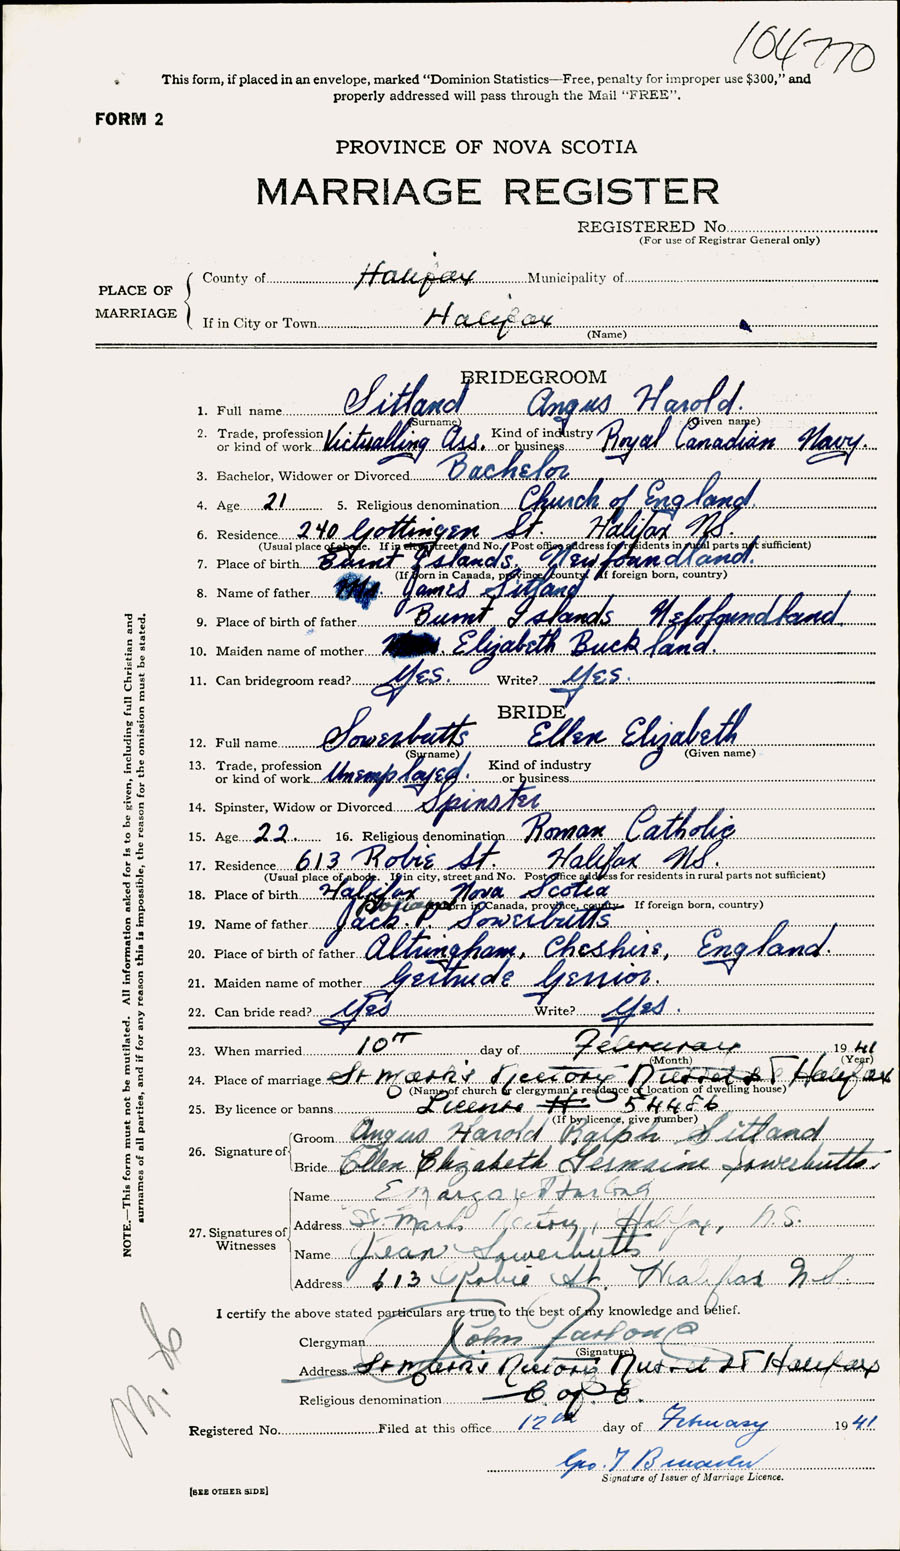 104770
This form, if placed in an envelope, marked "Dominion Statistics—Free, penalty for improper use $300," and
properly addressed will pass through the Mail "FREE".
FORM 2
PROVINCE OF NOVA SCOTIA
MARRIAGE REGISTER
REGISTERED No.
(For use of Registrar General only)
PLACE OF MARRIAGE
County of Halifax Municipality of
If in City or Town Halifax
(Name)
BRIDEGROOM
1. Full name Sitland Angus Harold.
(Surname) (Given name)
2. Trade, profession or kind of work Victualling Ass. Kind of industry or business Royal Canadian Navy.
3. Bachelor, Widower or Divorced Bachelor
4. Age 21 5. Religious denomination Church of England.
6. Residence 240 Gottingen St. Halifax N.S.
(Usual place of abode. If in city, street and No. Post office address for residents in rural parts not sufficient)
7. Place of birth Burnt Islands, Newfoundland.
(If born in Canada, province, county. If foreign born, country)
8. Name of father James Sitland
9. Place of birth of father Burnt Islands Nefofoundland
10. Maiden name of mother Elizabeth Buckland.
11. Can bridegroom read? Yes. Write? Yes.
BRIDE
12. Full name Sowerbutts Ellen Elizabeth
(Surname) (Given name)
13. Trade, profession or kind of work Unemployed. Kind of industry or business
14. Spinster, Widow or Divorced Spinster
15. Age 22. 16. Religious denomination Roman Catholic
17. Residence 613 Robie St. Halifax N.S.
(Usual place of abode. If in city, street and No. Post office address for residents in rural parts not sufficient)
18. Place of birth Halifax Nova Scotia
(If born in Canada, province, county. If foreign born, country)
19. Name of father Jack. P. Sowerbutts
20. Place of birth of father Altringham, Cheshire, England.
21. Maiden name of mother Gertrude Gerrior.
22. Can bride read? Yes Write? Yes.
23. When married 10th day of February 1941
(Month) (Year)
24. Place of marriage St Mark's Rectory Russell St Halifax
(Name of church or clergyman's residence or location of dwelling house)
25. By licence or banns License # 54486
(If by licence, give number)
26. Signature of
Groom Angus Harold Ralph Sitland
Bride Ellen Elizabeth Germaine Sowerbutts.
27. Signatures of Witnesses
Name E Margaret
Address St. Mark's Rectory, Halifax, N.S.
Name Jean Sowerbutts
Address 613 Robie St. Halifax N.S.
I certify the above stated particulars are true to the best of my knowledge and belief.
Clergyman
(Signature)
Address St Mark's Rectory Russell St Halifax
Religious denomination C of E.
Registered No. Filed at this office 12th day of February 1941
Geo. T
Signature of Issuer of Marriage Licence.
[SEE OTHER SIDE]
NOTE.—This form must not be mutilated. All information asked for is to be given, including full Christian and
surnames of all parties, and if for any reason this is impossible, the reason for the omission must be stated.